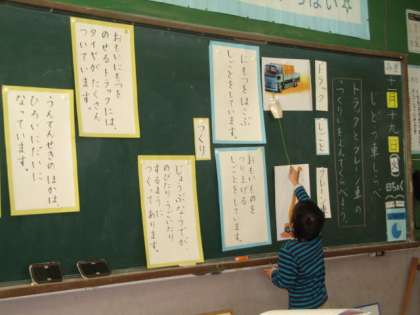 っぱい☆
月十九日
じどう車しらべ
トラックとクレーン車の
トラック
しごと
にもつをはこぶ
しごとをしています。
おもいものを
つり上げる
しごとをしています。
つくり
おもいにもつを
のせるトラックには、
タイヤがたくさん
ついています。
じょうぶなうでが、
のびたりうごいたり
するように、
つくってあります。
うんてんせきのほかは、
ひろいにだいに
なっています。